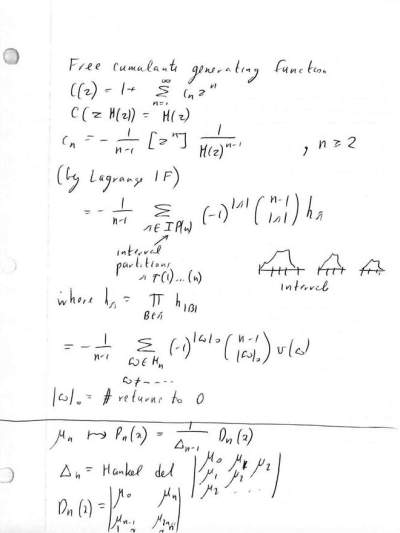 Free cumulants generating function
C(z) = 1 + ∑_{n=1}^{∞} c_n z^n
C(z M(z)) = M(z)
c_n = - 1/(n-1) [z^n] 1/(M(z)^{n-1}) , n ≥ 2
(by Lagrange IF)
= - 1/(n-1) ∑_{π ∈ IP(n)} (-1)^{|π|} \binom{n-1}{|π|} h_π
interval
partitions
interval
where h_π = ∏_{B∈π} h_{|B|}
= - 1/(n-1) ∑_{ω ∈ M_n} (-1)^{|ω|_0} \binom{n-1}{|ω|_0} v(ω)
|ω|_0 = # returns to 0
μ_n ↦ P_n(z) = 1/Δ_{n-1} D_n(z)
Δ_n = Hankel det | μ_0 μ_1 μ_2
μ_1 μ_2
μ_2 ... |
D_n(z) = | μ_0 μ_n
μ_{n-1}